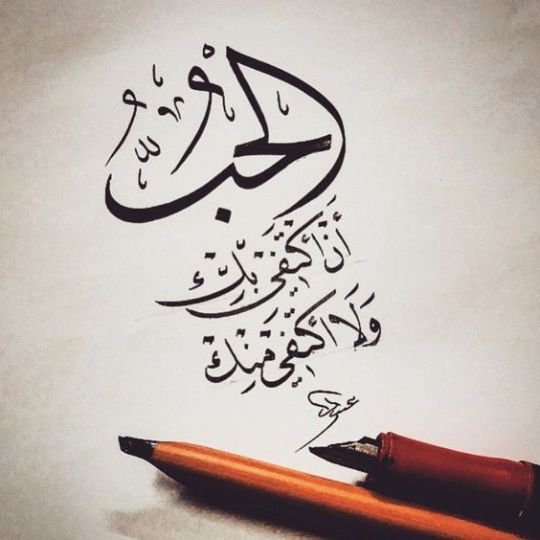 الحُبُّ
أَنَّ أَكْتَفِيَ بِكِ
وَلَا أَكْتَفِيَ مِنْكِ